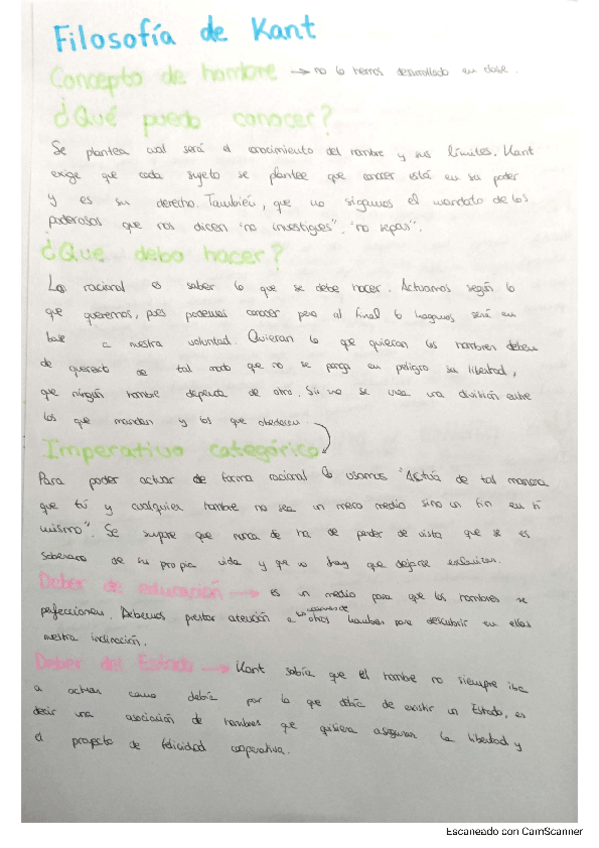 Filosofía de Kant
Concepto de hombre → no lo hemos desarrollado en clase.
¿Qué puedo conocer?
Se plantea cual será el conocimiento del hombre y sus límites. Kant
exige que cada sujeto se plantee que conocer está en su poder
y es su derecho. También, que no sigamos el mandato de los
poderosos que nos dicen "no investigues", "no sepas".
¿Que debo hacer?
Lo racional es saber lo que se debe hacer. Actuamos según lo
que queremos, pues podemos conocer pero al final lo hagamos será en
base a nuestra voluntad. Quieran lo que quieran los hombres deben
de quererlo de tal modo que no se ponga en peligro su libertad,
que ningún hombre dependa de otro. Si no se crea una división entre
los que mandan y los que obedecen
Imperativo categórico
Para poder actuar de forma racional usamos "Actúa de tal manera
que tú y cualquier hombre no sea un mero medio sino un fin en sí
mismo". Se supone que nunca se ha de perder de vista que se es
soberano de su propia vida y que no hay que dejarse esclavizar.
Deber de educación → es un medio para que los hombres se
perfeccionen. Debemos prestar atención a otros hombres para descubrir en ellas
nuestra inclinación.
Deber del Estado → Kant sabía que el hombre no siempre iba
a actuar como debía por lo que debía de existir un Estado, es
decir una asociación de hombres que quisiera asegurar la libertad y
el proyecto de felicidad cooperativa.
Escaneado con CamScanner